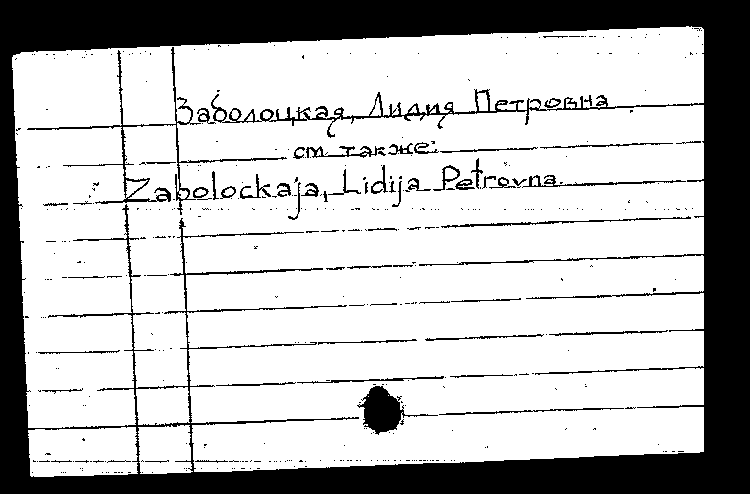 Заболоцкая, Лидия Петровна
см также:
Zabolockaja, Lidija Petrovna